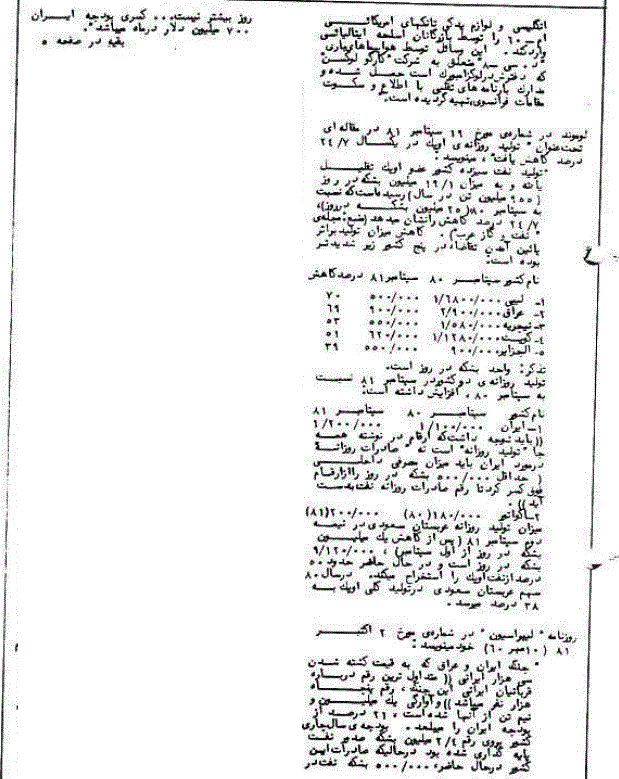 انگلیسی و لوازم یدکی تانکهای امریکائی
ام-۱۰ را توسط بازرگانان اسلحه ایتالیائی
واردکند. این وسائل توسط هواپیماهای باری
"د. سی-۸" متعلق به شرکت "کارگو لوکس"
که دفترش درلوکزامبورک است حمل شده و
مدارک بارنامه های تقلبی با اطلاع و سکوت
مقامات فرانسوی، تهیه گردیده است."
لوموند در شماره‌ی مورخ ۱۹ سپتامبر ۸۱ در مقاله ای
تحت عنوان "تولید روزانه ی اوپک در یکسال ۲۴/۷
درصد کاهش یافت"، مینویسد:
"تولید نفت سیزده کشور عضو اوپک تقلیل
یافته و به میزان ۱۹/۱ میلیون بشکه در روز
(۹۵۵ میلیون تن در سال) رسیده است که نسبت
به سپتامبر ۸۰ (۲۵ میلیون بشکه در روز)،
۲۴/۷ درصد کاهش را نشان میدهد (منبع: مجله‌ی
"نفت و گاز عرب"). کاهش میزان تولید براثر
پائین آمدن تقاضا، در پنج کشور زیر شدیدتر
بوده است:
نام کشور سپتامبر ۸۰ سپتامبر ۸۱ درصد کاهش
۱- لیبی ۱/۶۸۰۰/۰۰۰ ۵۰۰/۰۰۰ ۷۰
۲- عراق ۲/۹۰۰/۰۰۰ ۹۰۰/۰۰۰ ۶۹
۳- نیجریه ۱/۵۸۰/۰۰۰ ۵۵۰/۰۰۰ ۵۳
۴- کویت ۱/۱۲۸۰/۰۰۰ ۶۲۰/۰۰۰ ۵۱
۵- الجزایر ۹۰۰/۰۰۰ ۵۵۰/۰۰۰ ۳۹
تذکر: واحد بشکه در روز است.
تولید روزانه ی دو کشور در سپتامبر ۸۱ نسبت
به سپتامبر ۸۰، افزایش داشته است:
نام کشور سپتامبر ۸۰ سپتامبر ۸۱
۱- ایران ۱/۱۰۰/۰۰۰ ۱/۲۰۰/۰۰۰
((باید توجه داشت که ارقام در نوشته همه
جا "تولید روزانه" است نه "صادرات روزانه"
درمورد ایران باید میزان مصرفی داخلی
(حداقل ۵۰۰/۰۰۰ بشکه در روز) را از ارقام
فوق کسر کرد تا رقم صادرات روزانه نفت بدست
آید)).
۲- اکواتور ۱۸۰/۰۰۰ (۸۰) ۲۰۰/۰۰۰ (۸۱)
میزان تولید روزانه عربستان سعودی در نیمه
دوم سپتامبر ۸۱ (پس از کاهش یک میلیون
بشکه در روز از اول سپتامبر)، ۹/۱۲۰/۰۰۰
بشکه در روز است و در حال حاضر حدود ۵۰
درصد از نفت اوپک را استخراج میکند. درسال ۸۰
سهم عربستان سعودی درتولید کلی اوپک به
۳۸ درصد میرسد.
روزنامه "لیبراسیون" در شماره‌ی مورخ ۲ اکتبر
۸۱ (۱۰ مهر ۶۰) خود مینویسد:
"جنگ ایران و عراق که به قیمت کشته شدن
سی هزار ایرانی ((متداول ترین رقم درباره
قربانیان ایرانی این جنگ، رقم پنجاه
هزار نفر میباشد)) و آوارگی یک میلیون و
نیم تن از آنها شده است، ۲۱ درصد از
بودجه ایران را میبلعد. بودجه ی سال جاری
کشور برروی رقم ۲/۴ میلیون بشکه صدور نفت
پایه گذاری شده بود درحالیکه صادرات این
کشور درحال حاضر، ۵۰۰/۰۰۰ بشکه نفت در
روز بیشتر نیست... کسری بودجه ایران
۷۰۰ میلیون دلار درماه میباشد".
بقیه در صفحه ۵